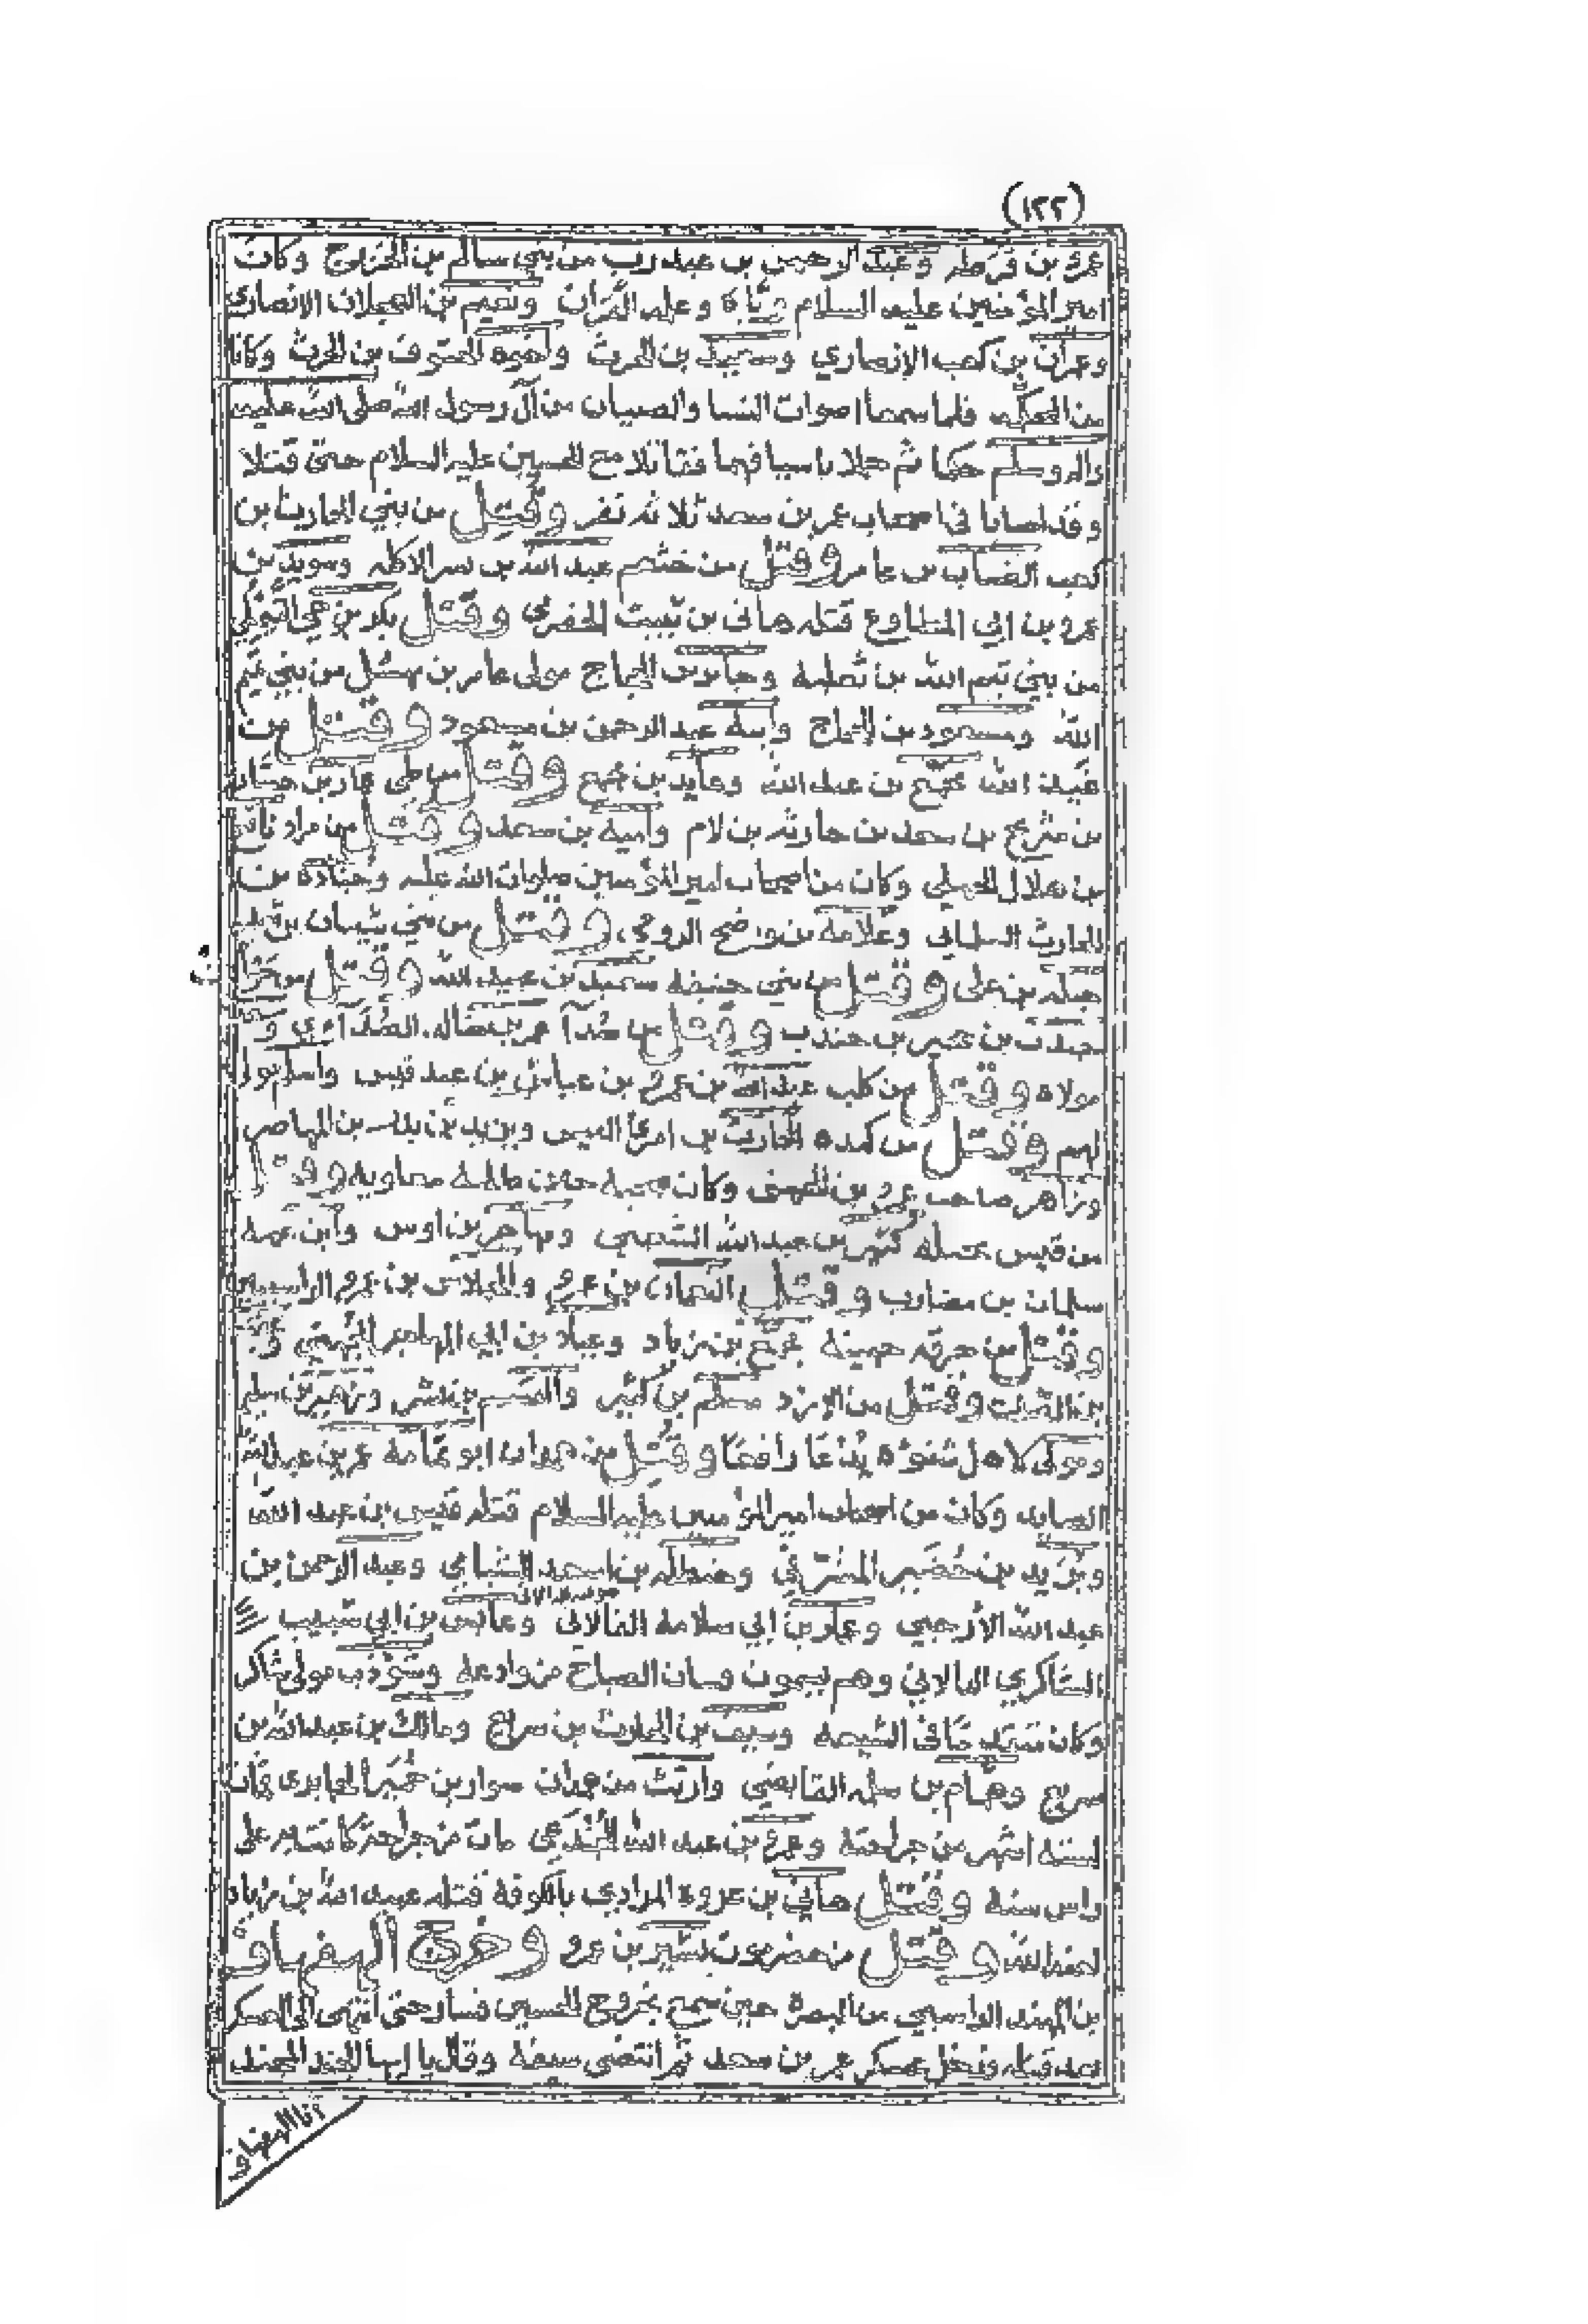 (١٢٢)
عمرو بن قرظه وعبد الرحمن بن عبد رب من بني سالم بن الخزرج وكان
امير المؤمنين عليه السلام ربّاه وعلمه القرآن ونعيم بن العجلان الانصاري
وعمران بن كعب الانصاري وسعد بن الحرث واخوه الحتوف بن الحرث وكانا
من المحكمه فلما سمعا اصوات النسا والصبيان من آل رسول الله صلى الله عليه
واله وسلم حكما ثم حملا باسيافهما فقاتلا مع الحسين عليه السلام حتى قتلا
وقد اصابا في اصحاب عمر بن سعد ثلاثه نفر وقتل من بني الحارث بن
كعب الضباب بن عامر وقتل من خثعم عبد الله بن بسر الاكله وسويد بن
عمرو بن ابي المطاوع قتله هاني بن ثبيت الحضرمي وقتل بكر بن حي التيملي
من بني تيم الله بن ثعلبه وجابر بن الحجاج مولى عامر بن نهشل من بني تيم
الله ومسعود بن الحجاج وابنه عبد الرحمن بن مسعود وقتل من
عبد الله مجمع بن عبد الله وعايد بن مجمع وقتل من طي عمار بن حسان
بن شريح بن سعد بن حارثه بن لام وامية بن سعد وقتل من مراد نافع
بن هلال الجملي وكان من اصحاب امير المؤمنين صلوات الله عليه وجنادة بن
الحارث السلماني وغلامه بن وضح الرومي وقتل من بني شيبان بن ثعلبه
جبله بن علي وقتل من بني حنيفه سعيد بن عبد الله وقتل من
جندب بن حجير بن جندب وقتل من صدا عمر بن خالد الصدآوي و
مولاه وقتل من كلب عبد الله بن عمرو بن عياش بن عبد قيس واسلم مولى
لهم وقتل من كنده الحارث بن امرئ القيس ويزيد بن بدر بن المهاصر
وزاهر صاحب عمرو بن الحمق وكان صحبه حين طلبه معاويه وقتل
من قيس بجيله كثير بن عبد الله الشعبي ومهاجر بن اوس وابن عمه
سلمان بن مضارب وقتل النعمان بن عمرو والحلاس بن عمرو الراسبيين
وقتل من حرقه جهينه مجمع بن زياد وعباد بن ابي المهاجر الجهني وعقبه
بن الصلت وقتل من الازد مسلم بن كثير والقسم بن بشر وزهير بن سليم
ومولى لاهل شنوؤه يدعا رافعا وقتل من همدان ابو ثمامه عمر بن عبد الله
الصايدي وكان من اصحاب امير المؤمنين عليه السلام قتله قيس بن عبد الله
وبرير بن خضير المشرقي وحنظله بن اسعد الشبامي وعبد الرحمن بن
عبد الله الارحبي وعمار بن ابي سلامه الدالاني وعابس بن ابي شبيب
الشاكري الدالاني وهم يسمون فتيان الصباح من وادعه وشوذب مولى شاكر
وكان متقدما في الشيعه وسيف بن الحارث بن سريع ومالك بن عبد الله بن
سريع وهمام بن سلمه القانصي وارتث من همدان سوار بن حمير الجابري فمات
لستة اشهر من جراحته وعمرو بن عبد الله الجندعي مات من جراحه كانت به على
راس سنة وقتل هاني بن عروة المرادي بالكوفة قتله عبيد الله بن زياد
لعنه الله وقتل من حضرموت بشير بن عمرو وخرج الهفهاف
بن المهند الراسبي من البصرة حين سمع بخروج الحسين فسار حتى انتهى الى العسكر
بعد قتله فدخل عسكر عمر بن سعد ثم انتضى سيفه وقال يا ايها الجند المجند
انا الهفهاف